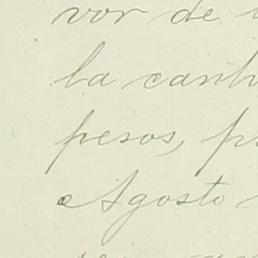 vor de
la canti
pesos, p
Agosto